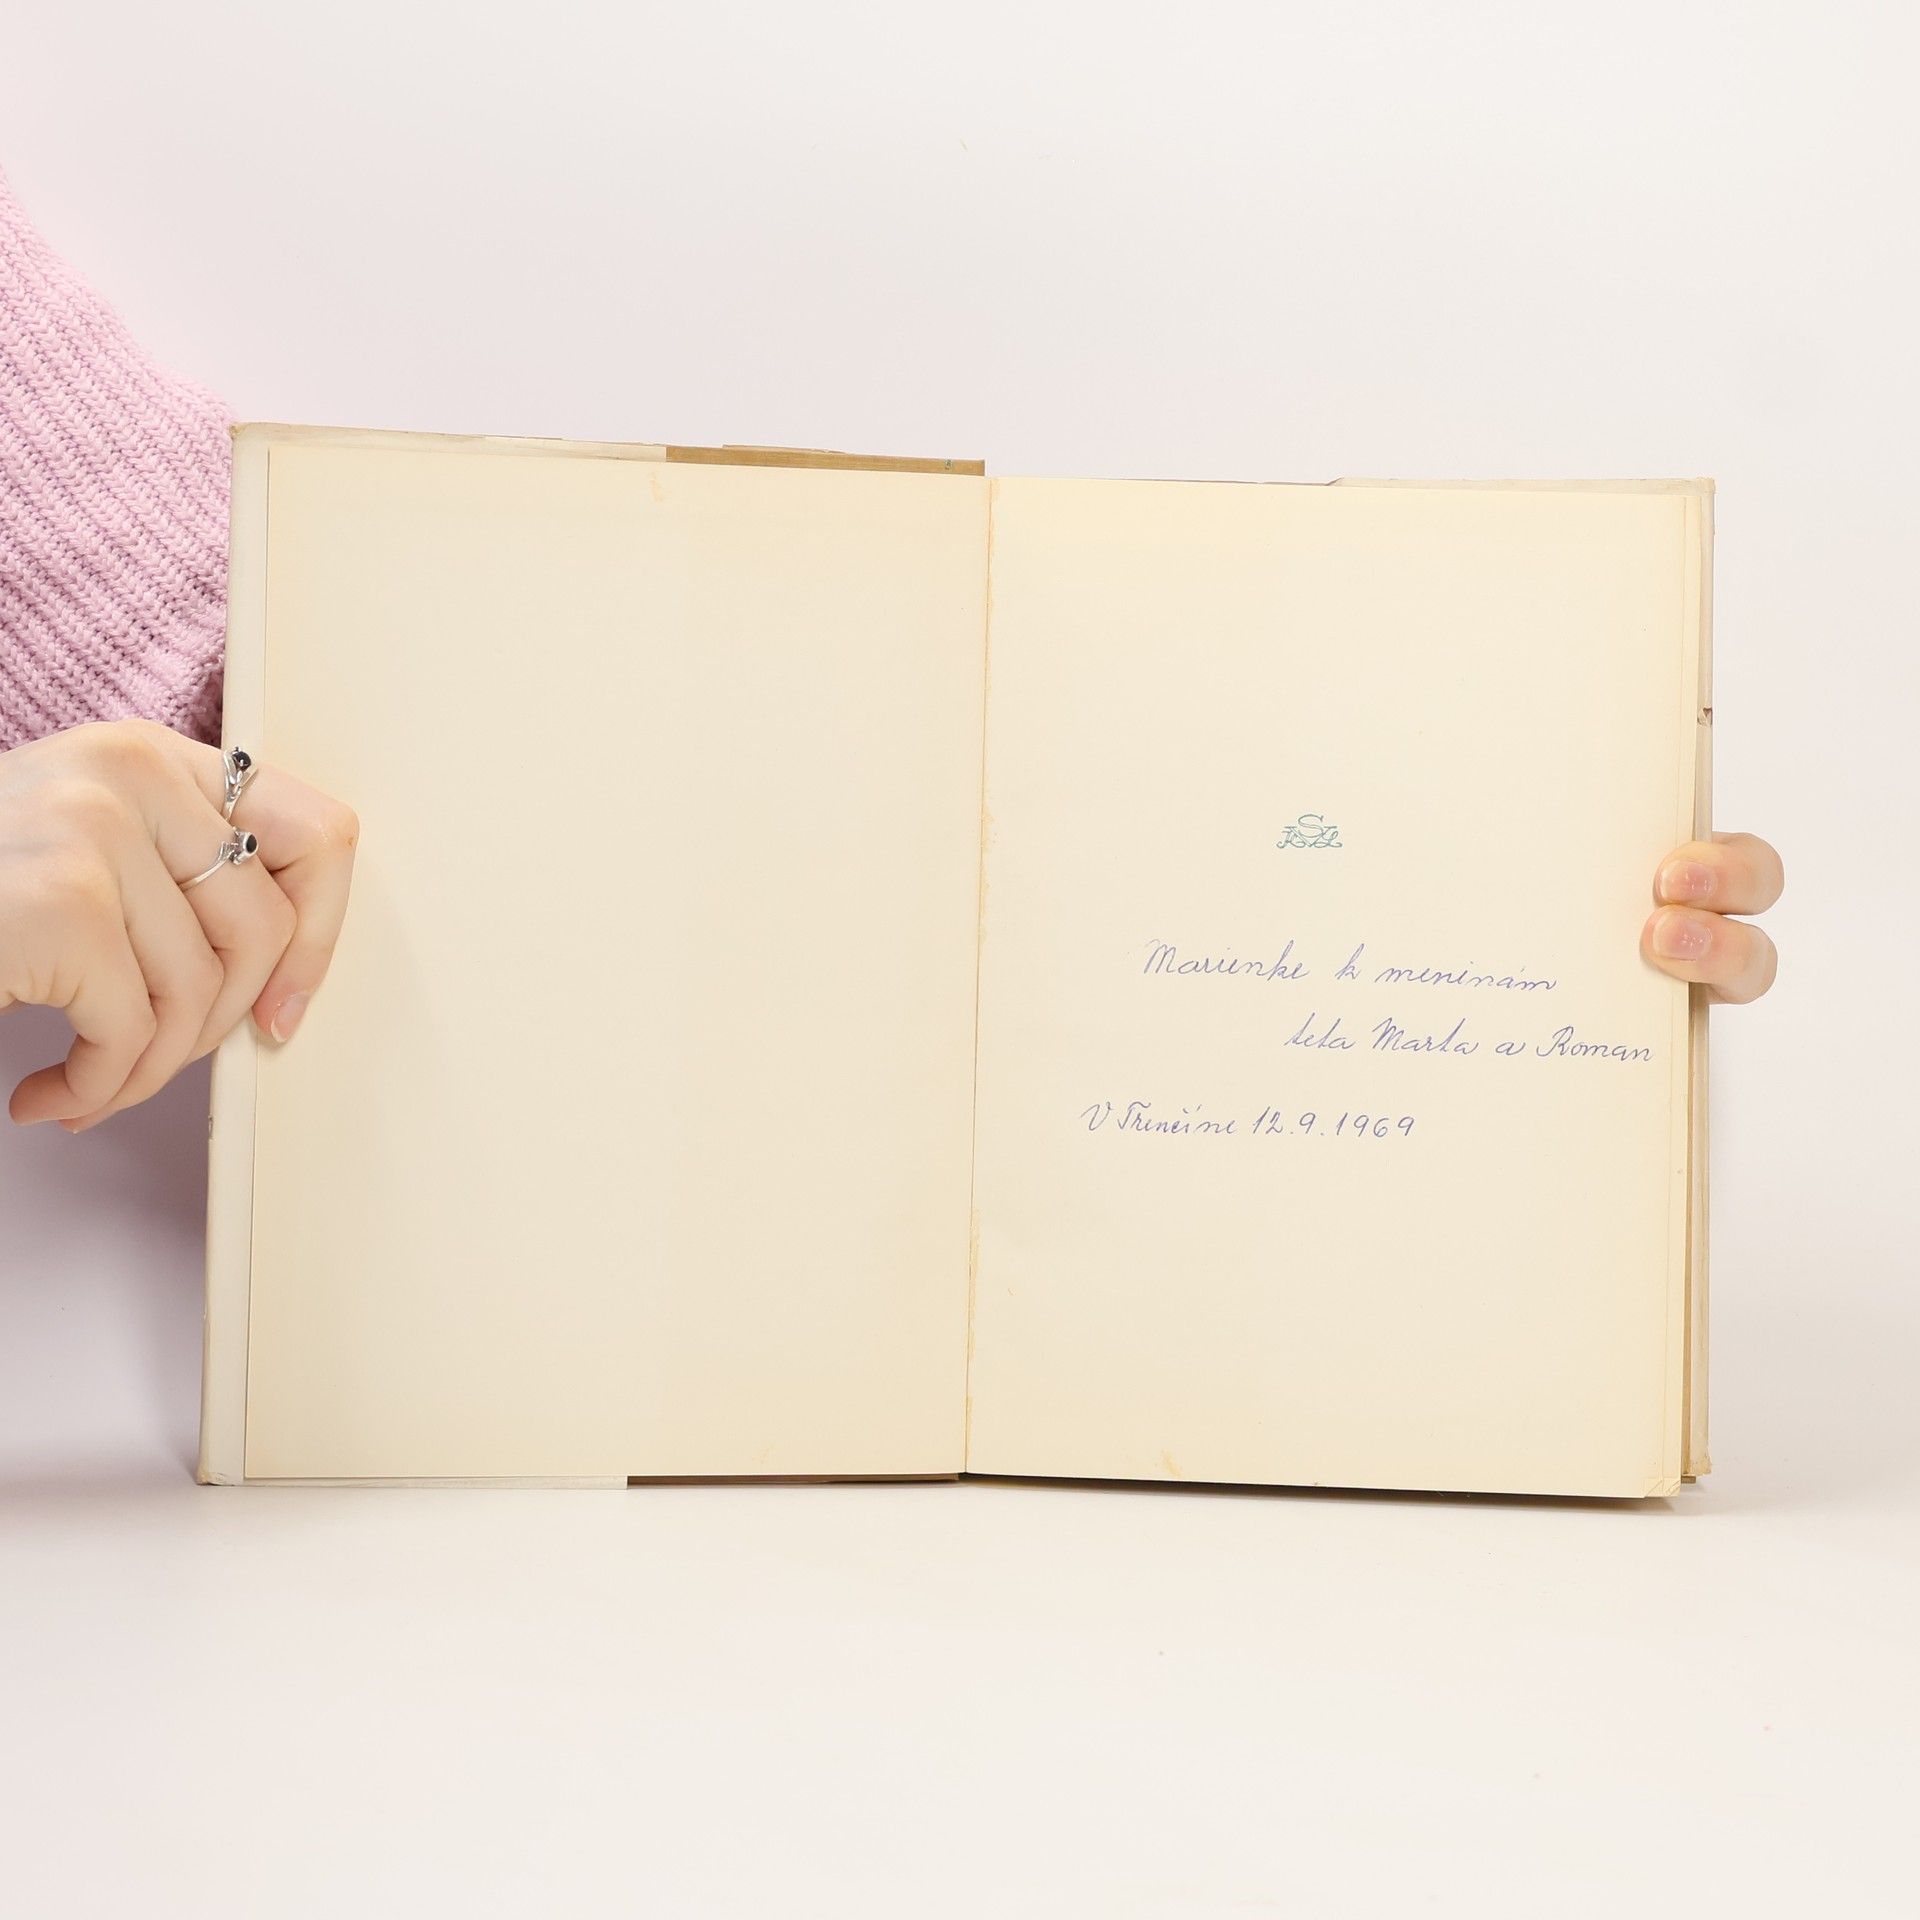 Marienke k meninám
teta Marta a Roman
V Trenčíne 12.9.1969